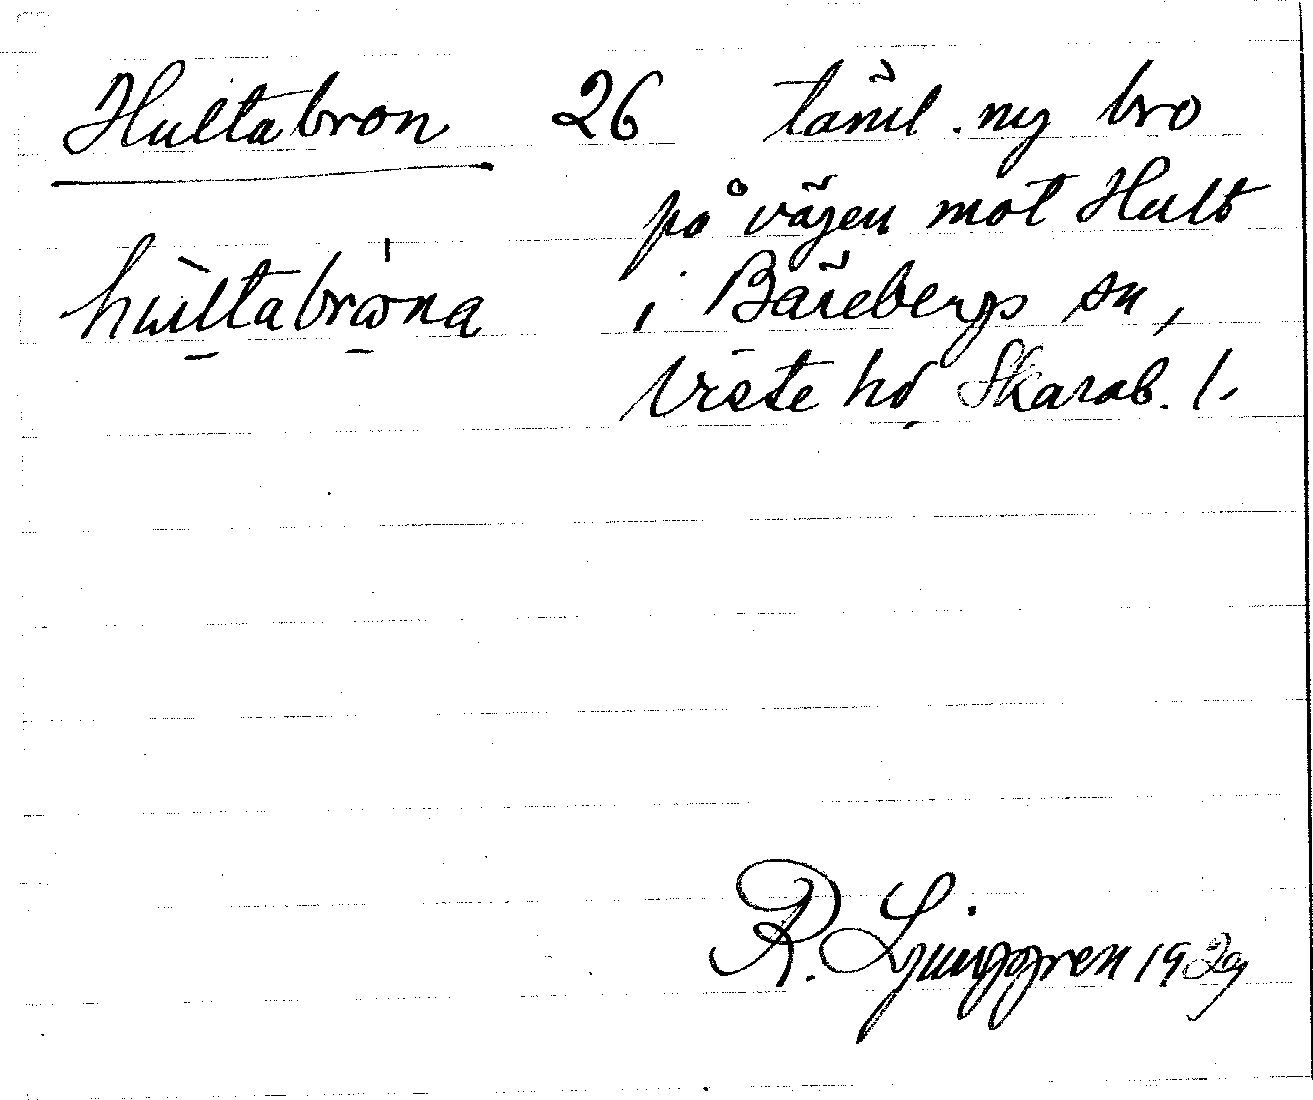 Hultabron 26 täml. ny bro
på vägen mot Hult
hultabrona i Bärebergs sn,
Viste hd Skarab. l.
R. Ljunggren 1929